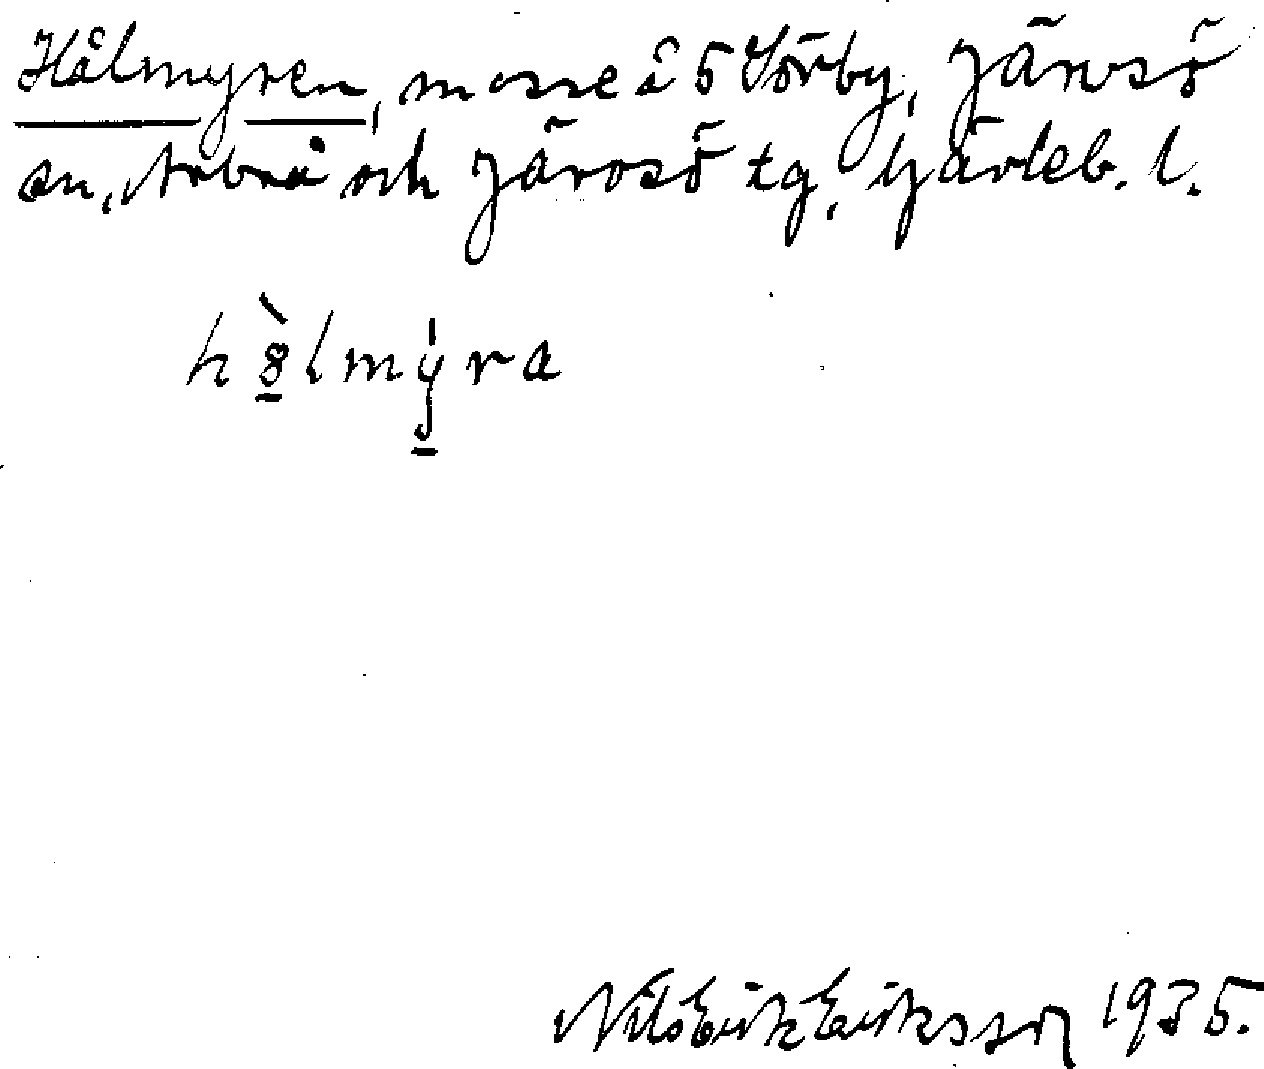 Hålmyren, mosse å 5 Sörby, Järvsö
sn, Arbrå och Järvsö tg, Gävleb. l.
hòlmýra
Nils Erik Eriksson 1935.